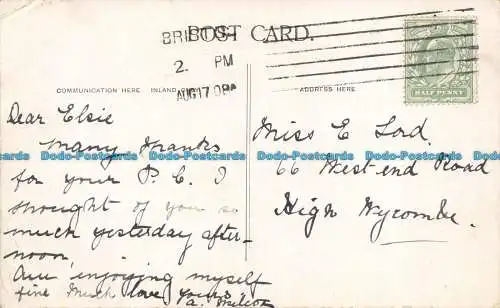 POST CARD.
BRISTOL
2. PM
AUG 17 08
HALF PENNY
COMMUNICATION HERE INLAND
ADDRESS HERE
Dear Elsie
Many thanks
for your P.C. I
thought of you so
much yesterday after-
noon,
Am enjoying myself
fine Much love yours
Miss E Lord.
66 West end Road
High Wycombe.
Dodo-Postcards Dodo-Postcards Dodo-Postcards Dodo-Postcards